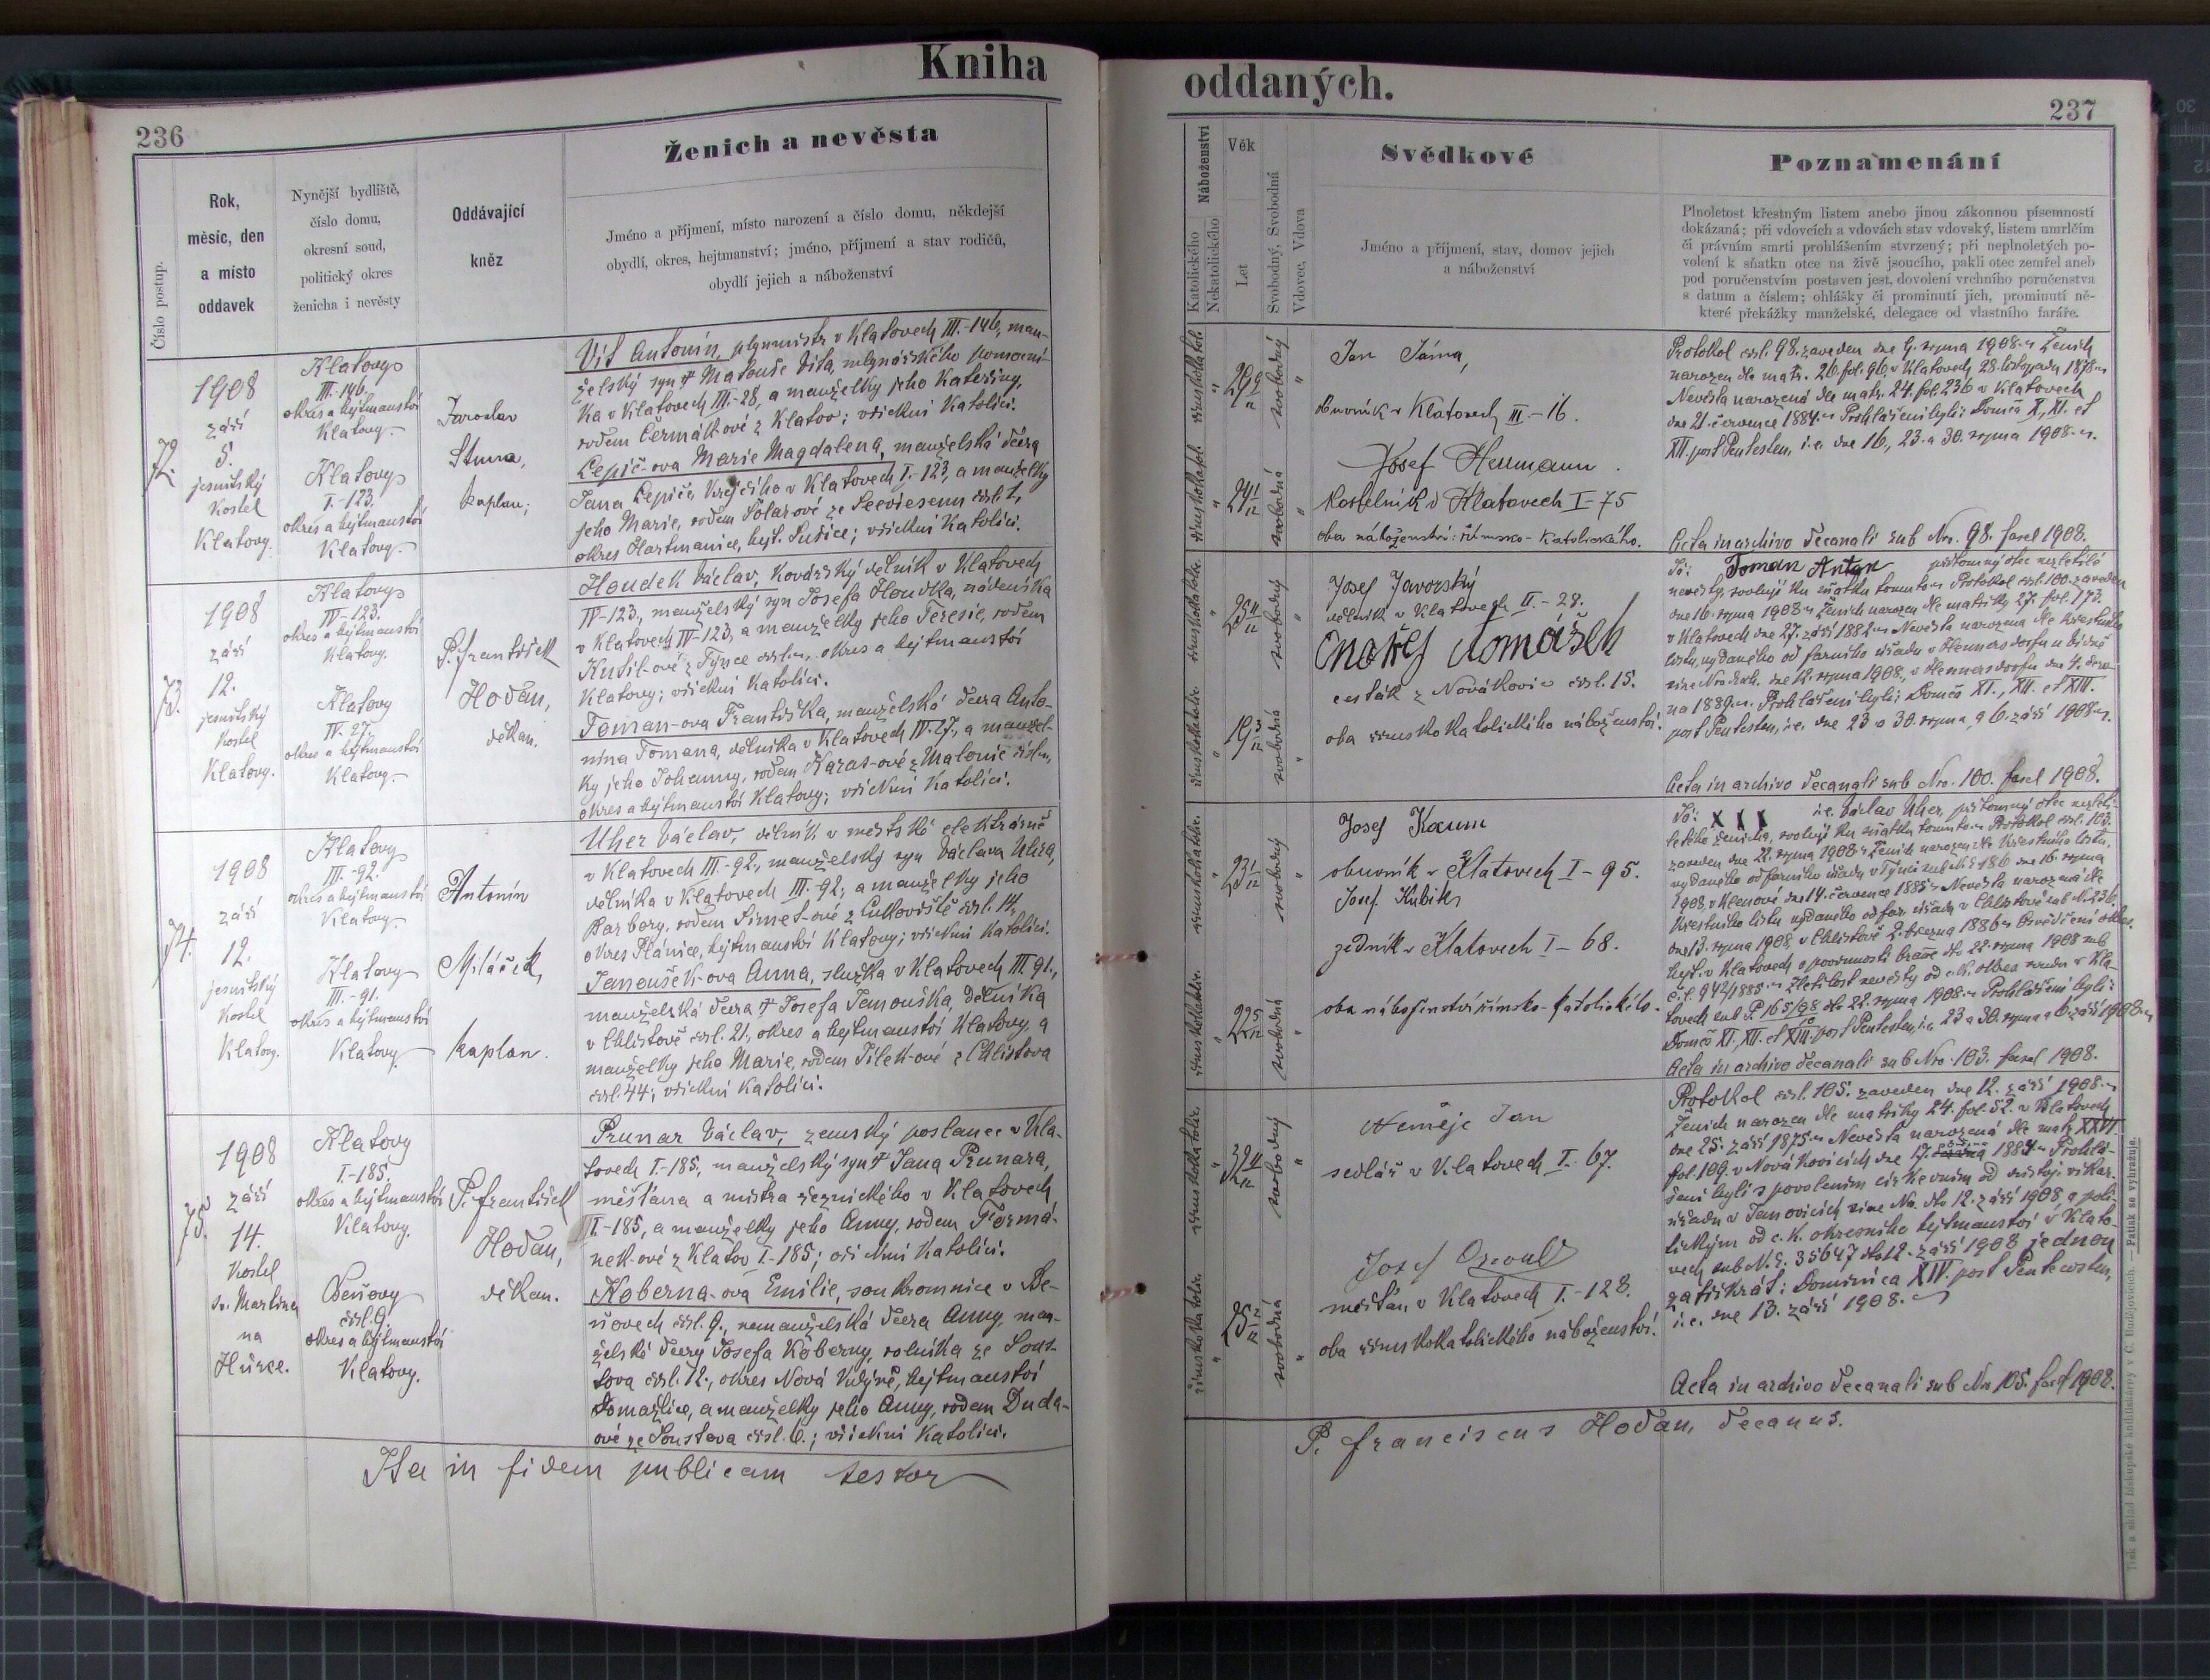 Kniha
236
Ženich a nevěsta
Číslo postup.
Rok,
měsíc, den
a místo
oddavek
Nynější bydliště,
číslo domu,
okresní soud,
politický okres
ženicha i nevěsty
Oddávající
kněz
Jméno a příjmení, místo narození a číslo domu, někdejší
obydlí, okres, hejtmanství; jméno, příjmení a stav rodičů,
obydlí jejich a náboženství
72.
1908
září
5.
jesuitský
kostel
Klatovy.
Klatovy
III.-146.
okres a hejtmanství
Klatovy.
Klatovy
I.-123.
okres a hejtmanství
Klatovy.
Jaroslav
kaplan;
Vít Antonín, plynmistr v Klatovech III.-146, man-
želský syn † Matouše Víta, mlynářského pomocní-
ka v Klatovech III.-28, a manželky jeho Kateřiny,
rodem Čermákové z Klatov; všickni katolíci.
Čepič-ova Marie Magdalena, manželská dcera
Jana Čepiče, krejčího v Klatovech I.-123, a manželky
jeho Marie, rodem Šolarové
okres Hartmanice, hejt. Sušice; všickni katolíci.
73.
1908
září
12.
jesuitský
kostel
Klatovy.
Klatovy
IV-123.
okres a hejtmanství
Klatovy.
Klatovy
IV. 27.
okres a hejtmanství
Klatovy.
P. František
Hoďan,
děkan.
Houdek Václav, kovářský dělník v Klatovech
IV-123., manželský syn Josefa Houdka, nádeníka
v Klatovech IV-123, a manželky jeho Teresie, rodem
okres a hejtmanství
Klatovy; všickni katolíci.
Toman-ova Františka, manželská dcera Anto-
nína Tomana, dělníka v Klatovech IV.-27., a manžel-
ky jeho Johanny, rodem Karas-ové z Malonic
okres a hejtmanství Klatovy; všickni katolíci.
74.
1908
září
12.
jesuitský
kostel
Klatovy.
Klatovy
III.-92.
okres a hejtmanství
Klatovy.
Klatovy
III.-91.
okres a hejtmanství
Klatovy
Antonín
Miláček,
kaplan.
Uher Václav, dělník v městské elektrárně
v Klatovech III.-92., manželský syn Václava Uhra,
dělníka v Klatovech III.-92., a manželky jeho
Barbory, rodem Šimet-ové z čísl. 14,
okres Plánice, hejtmanství Klatovy; všickni katolíci.
Janoušek-ova Anna, služka v Klatovech III.91.,
manželská dcera † Josefa Janouška, dělníka
v Chlistově čísl. 21., okres a hejtmanství Klatovy, a
manželky jeho Marie, rodem Jílek-ové z Chlistova
čísl. 44; všickni katolíci.
75.
1908
září
14.
Kostel
sv. Martina
na
Hůrce.
Klatovy
I.-185.
okres a hejtmanství
Klatovy.
Beňovy
čísl. 9.
okres a hejtmanství
Klatovy.
P. František
Hoďan,
děkan.
Prunar Václav, zemský poslanec v Kla-
tovech I.-185, manželský syn † Jana Prunara,
měšťana a mistra řeznického v Klatovech
I.-185, a manželky jeho Anny, rodem Formá-
nek-ové z Klatov I.-185; všickni katolíci.
Koberna-ova Emilie, soukromnice v Be-
ňovech čísl. 9., nemanželská dcera Anny, man-
želské dcery Josefa Koberny, rolníka ze Lous-
tova čísl. 12., okres Nová Kdyně, hejtmanství
Domažlice, a manželky jeho Anny, rodem Duda-
ové ze Loustova čísl. 6.; všickni katolíci.
Ita in fidem publicam testor
oddaných.
237
Náboženství
Katolického
Nekatolického
Věk
Let
Svobodný, Svobodná
Vdovec, Vdova
Svědkové
Jméno a příjmení, stav, domov jejich
a náboženství
Poznamenání
Plnoletost křestným listem anebo jinou zákonnou písemností
dokázaná; při vdovcích a vdovách stav vdovský, listem umrlčím
či právním smrti prohlášením stvrzený; při neplnoletých po-
volení k sňatku otce na živě jsoucího, pakli otec zemřel aneb
pod poručenstvím postaven jest, dovolení vrchního poručenstva
s datum a číslem; ohlášky či prominutí jich, prominutí ně-
které překážky manželské, delegace od vlastního faráře.
svobodný
svobodná
Jan Jáma,
obuvník v Klatovech III.-16.
Josef Herrmann.
kostelník v Klatovech I-75
oba náboženství: římsko-katolického.
Protokol čísl. 98. zaveden dne 9. srpna 1908. Ženich
narozen dle matr. 26. fol. 96. v Klatovech 28. listopadu 1878.
Nevěsta narozená dle matr. 24. fol. 236 v Klatovech
dne 21. července 1884. Prohlášení byli: Domca X., XI. et
XII. post Pentecosten, i.e. dne 16., 23. a 30. srpna 1908.
Acta in archivo decanali sub Nro. 98. fasc. 1908.
svobodný
svobodná
Josef Javorský
dělník v Klatovech II.-28.
Ondřej Tomášek
cesták z Novákovic čísl. 15.
oba římskokatolického náboženství.
Já: Toman Anton přítomný otec nezletilé
nevěsty, svoluji ku sňatku tomuto. Protokol čísl. 100. zaveden
dne 16. srpna 1908. Ženich narozen dle matriky 27. fol. 173.
v Klatovech dne 27. září 1882. Nevěsta narozena dle křestního
listu, vydaného od farního úřadu v Hennersdorfu
dne 12. srpna 1908, v Hennersdorfu dne 4.
1889. Prohlášení byli: Domca XI., XII. et XIII.
post Pentecosten, i.e. dne 23. a 30. srpna, a 6. září 1908.
Acta in archivo decanali sub Nro. 100. fasc. 1908.
svobodný
svobodná
Josef
obuvník v Klatovech I-95.
Josef Kubík
zedník v Klatovech I-68.
oba náboženství římsko-katolického.
Já: X X X i.e. Václav Uher, přítomný otec nezle-
tilého ženicha, svoluji ku sňatku tomuto. Protokol čísl. 103.
zaveden dne 22. srpna 1908. Ženich narozen dle křestního listu,
vydaného od farního úřadu v Týnci dne 16. srpna
1908 v Klenové dne 14. července 1885. Nevěsta narozená dle
křestního listu vydaného od far. úřadu v Chlistově sub N. 236.
dne 13. srpna 1908, v Chlistově 2. března 1886. Osvědčení okres.
hejt. v Klatovech o povinnosti branné dto 22. srpna 1908 sub
č.t. 942/1885. Zletilost nevěsty od c.k. okres soudu v Kla-
tovech sub P. 165/98 dto 22. srpna 1908. Prohlášení byli:
Domca XI., XII. et XIII. post Pentecosten, i.e. 23. a 30. srpna a 6. září 1908.
Acta in archivo decanali sub Nro. 103. fasc. 1908.
svobodný
svobodná
Němejc Jan
sedlář v Klatovech I.-67.
Josef Oswald
měšťan v Klatovech I.-128.
oba římskokatolického náboženství.
Protokol čísl. 105. zaveden dne 12. září 1908.
Ženich narozen dle matriky 24. fol. 52. v Klatovech
dne 25. září 1875. Nevěsta narozená dle matr. XXVI.
fol. 109. v Novákovicích dne 17. 1884. Prohlá-
šeni byli s povolením církevním od důstoj. vikar.
úřadu v Janovicích sine Nro. dto 12. září 1908 a poli-
tickým od c. k. okresního hejtmanství v Klato-
vech sub N.E. 35647 dto 12. září 1908 jednou
zatřikrát: Dominica XIV. post Pentecosten,
i.e. dne 13. září 1908.
Acta in archivo decanali sub Nro. 105. fasc. 1908.
P. Franciscus Hoďan, decanus.
Tisk a sklad biskupské knihtiskárny v Č. Budějovicích. — Patisk se vyhražuje.